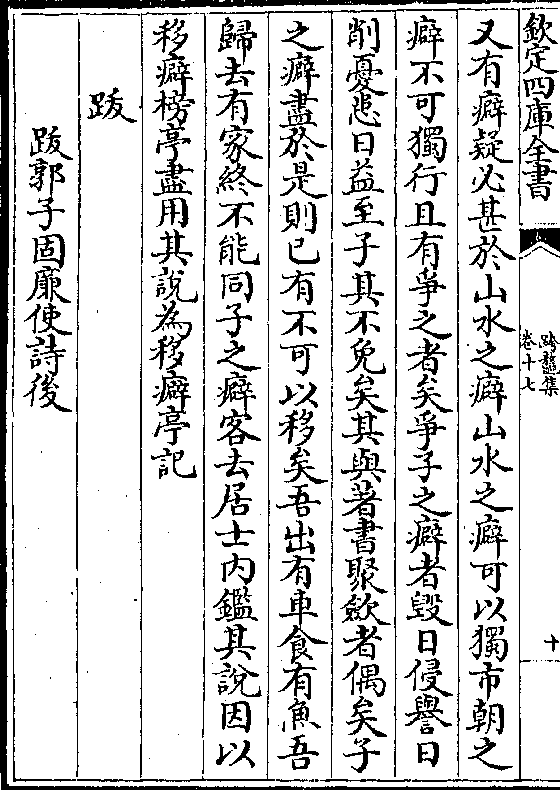 欽定四庫全書
跨鼇集
卷十七
十
又有癖疑必甚於山水之癖山水之癖可以獨市朝之
癖不可獨行且有爭之者矣爭子之癖者毀日侵譽日
削憂患日益至子其不免矣其與著書聚歛者偶矣子
之癖盡於是則已有不可以移矣吾出有車食有魚吾
歸去有家終不能同子之癖客去居士内鑑其說因以
移癖榜亭盡用其說為移癖亭記
跋
跋郭子固廉使詩後